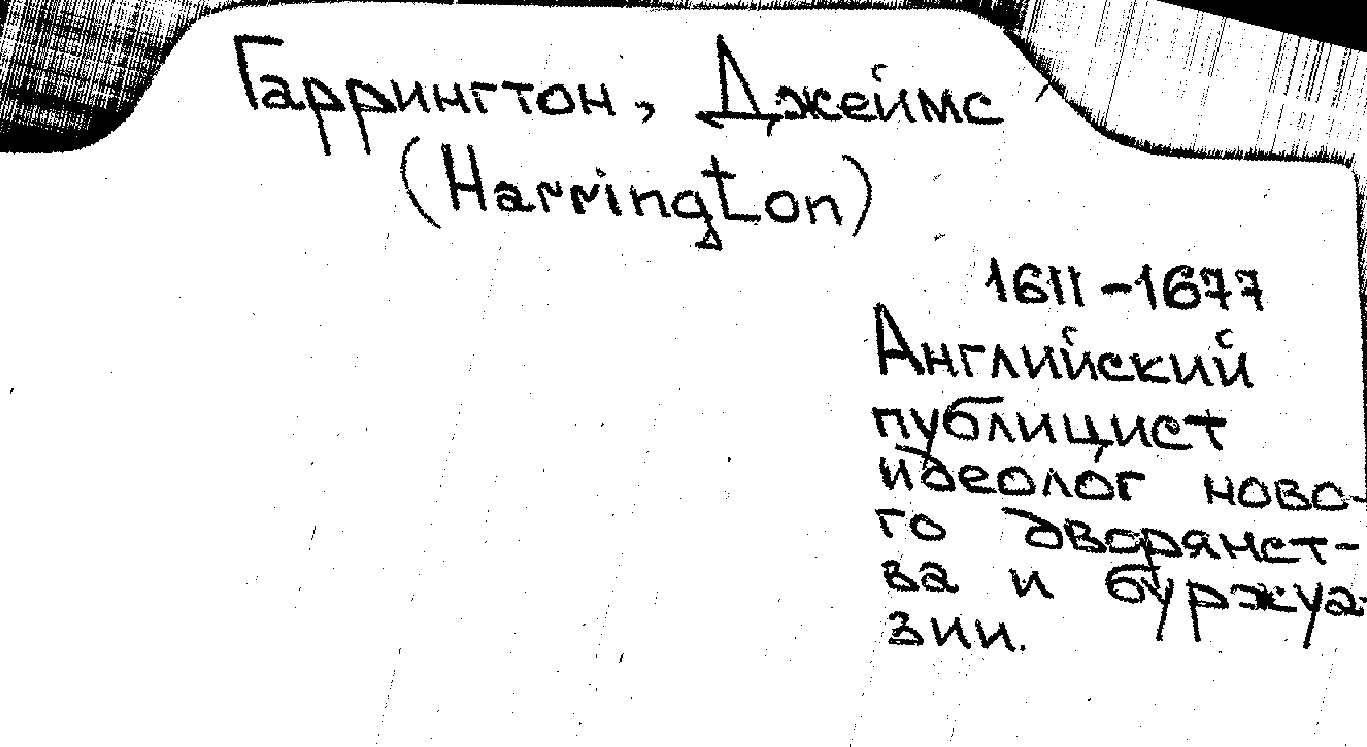 Гаррингтон, Джеймс
(Harrington)
1611-1677
Английский
публицист
идеолог ново-
го дворянст-
ва и буржуа-
зии.